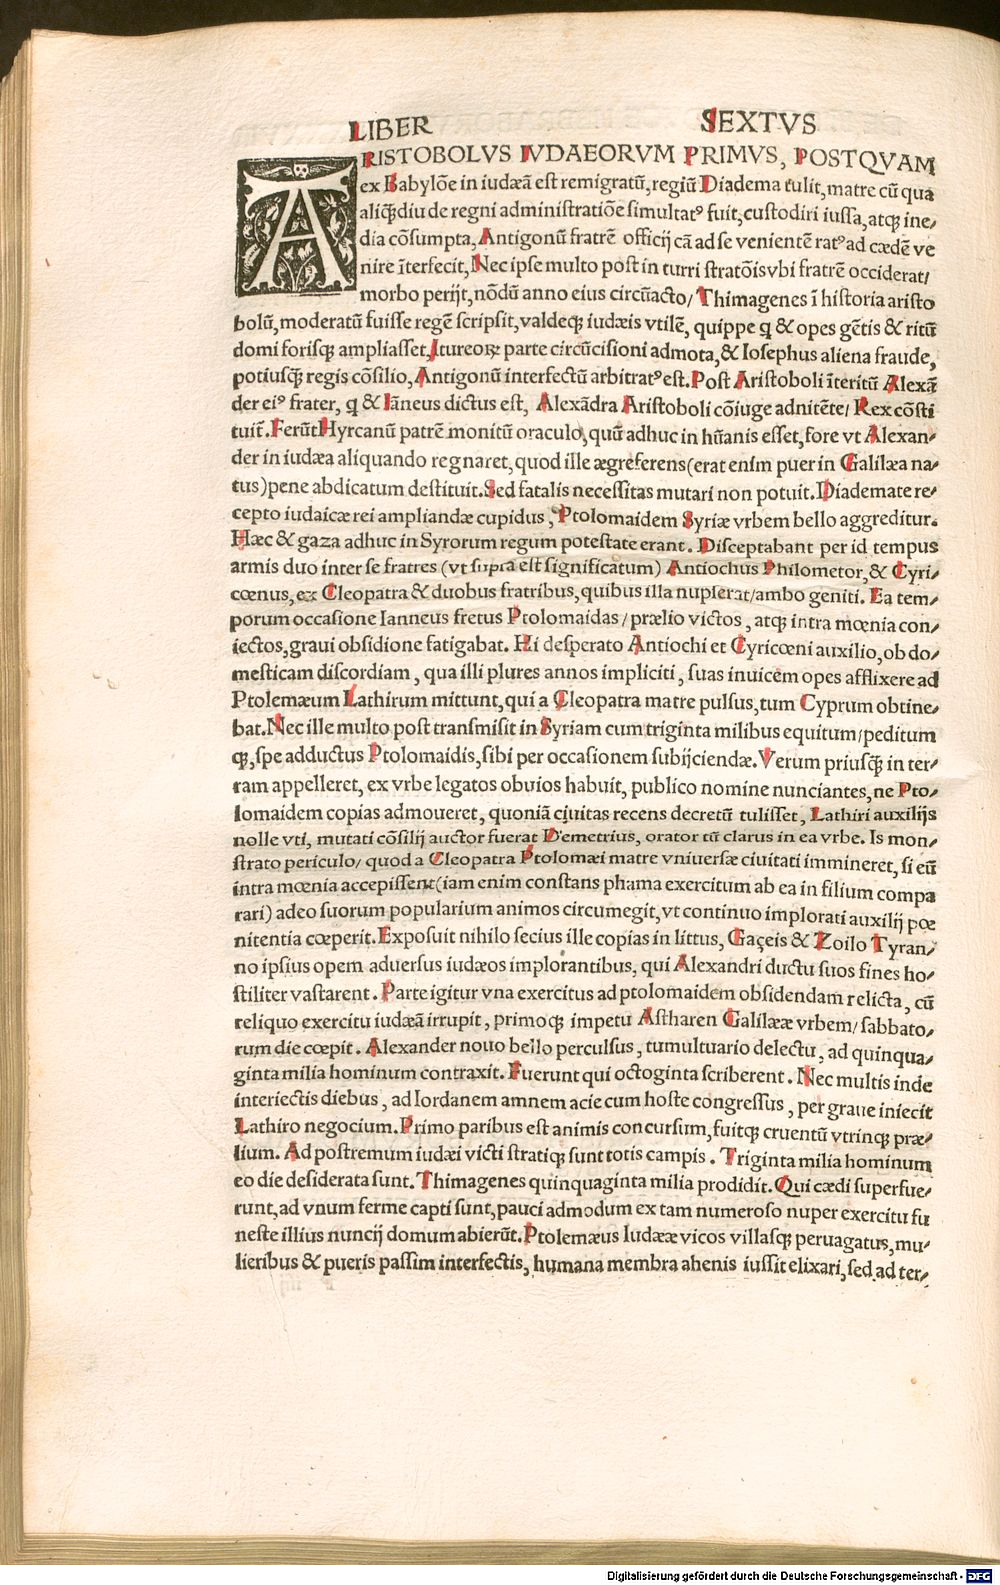 LIBER SEXTVS
ARISTOBOLVS IVDAEORVM PRIMVS, POSTQVAM
ex Babylõe in iudæã est remigratũ, regiũ Diadema tulit, matre cũ qua
aliq̃diu de regni administratiõe simultatꝰ fuit, custodiri iussa, atqꝫ ine/
dia cõsumpta, Antigonũ fratrẽ officij cã ad se venientẽ ratꝰ ad cædẽ ve
nire ĩterfecit, Nec ipse multo post in turri stratõis vbi fratrẽ occiderat/
morbo perijt, nõdũ anno eius circũacto/ Thimagenes ĩ historia aristo
bolũ, moderatũ fuisse regẽ scripsit, valdeqꝫ iudæis vtilẽ, quippe q & opes gẽtis & ritũ
domi forisqꝫ ampliasset, Itureoꝝ parte circũcisioni admota, & Iosephus aliena fraude,
potiusq̃ regis cõsilio, Antigonũ interfectũ arbitratꝰ est. Post Aristoboli ĩteritũ Alexã
der eiꝰ frater, q & Iãneus dictus est, Alexãdra Aristoboli cõiuge adnitẽte/ Rex cõsti
tuit̃. Ferũt Hyrcanũ patrẽ monitũ oraculo, quũ adhuc in hũanis esset, fore vt Alexan/
der in iudæa aliquando regnaret, quod ille ægreferens (erat enim puer in Galilæa na/
tus) pene abdicatum destituit. Sed fatalis necessitas mutari non potuit. Diademate re/
cepto iudaicæ rei ampliandæ cupidus, Ptolomaidem Syriæ vrbem bello aggreditur.
Hæc & gaza adhuc in Syrorum regum potestate erant. Disceptabant per id tempus
armis duo inter se fratres (vt supra est significatum) Antiochus Philometor, & Cyri/
cœnus, ex Cleopatra & duobus fratribus, quibus illa nupserat/ ambo geniti. Ea tem/
porum occasione Ianneus fretus Ptolomaidas/ prælio victos, atqꝫ intra mœnia con/
iectos, graui obsidione fatigabat. Hi desperato Antiochi et Cyricœni auxilio, ob do/
mesticam discordiam, qua illi plures annos impliciti, suas inuicem opes afflixere ad
Ptolemæum Lathirum mittunt, qui a Cleopatra matre pulsus, tum Cyprum obtine/
bat. Nec ille multo post transmisit in Syriam cum triginta milibus equitum/ peditum
qꝫ, spe adductus Ptolomaidis, sibi per occasionem subijciendæ. Verum priusq̃ in ter/
ram appelleret, ex vrbe legatos obuios habuit, publico nomine nunciantes, ne Pto/
lomaidem copias admoueret, quoniã ciuitas recens decretũ tulisset, Lathiri auxilijs
nolle vti, mutati cõsilij auctor fuerat Demetrius, orator tũ clarus in ea vrbe. Is mon/
strato periculo/ quod a Cleopatra Ptolomæi matre vniuersæ ciuitati immineret, si eũ
intra mœnia accepissent (iam enim constans phama exercitum ab ea in filium compa
rari) adeo suorum popularium animos circumegit, vt continuo implorati auxilij pœ
nitentia cœperit. Exposuit nihilo secius ille copias in littus, Gaçeis & Zoilo Tyran/
no ipsius opem aduersus iudæos implorantibus, qui Alexandri ductu suos fines ho/
stiliter vastarent. Parte igitur vna exercitus ad ptolomaidem obsidendam relicta, cũ
reliquo exercitu iudæã irrupit, primoqꝫ impetu Astharen Galilææ vrbem/ sabbato/
rum die cœpit. Alexander nouo bello perculsus, tumultuario delectu, ad quinqua/
ginta milia hominum contraxit. Fuerunt qui octoginta scriberent. Nec multis inde
interiectis diebus, ad Iordanem amnem acie cum hoste congressus, per graue iniecit
Lathiro negocium. Primo paribus est animis concursum, fuitqꝫ cruentũ vtrinqꝫ præ/
lium. Ad postremum iudæi victi stratiqꝫ sunt totis campis. Triginta milia hominum
eo die desiderata sunt. Thimagenes quinquaginta milia prodidit. Qui cædi superfue/
runt, ad vnum ferme capti sunt, pauci admodum ex tam numeroso nuper exercitu fu
neste illius nuncij domum abierũt. Ptolemæus Iudææ vicos villasqꝫ peruagatus, mu/
lieribus & pueris passim interfectis, humana membra ahenis iussit elixari, sed ad ter/
Digitalisierung gefördert durch die Deutsche Forschungsgemeinschaft - DFG